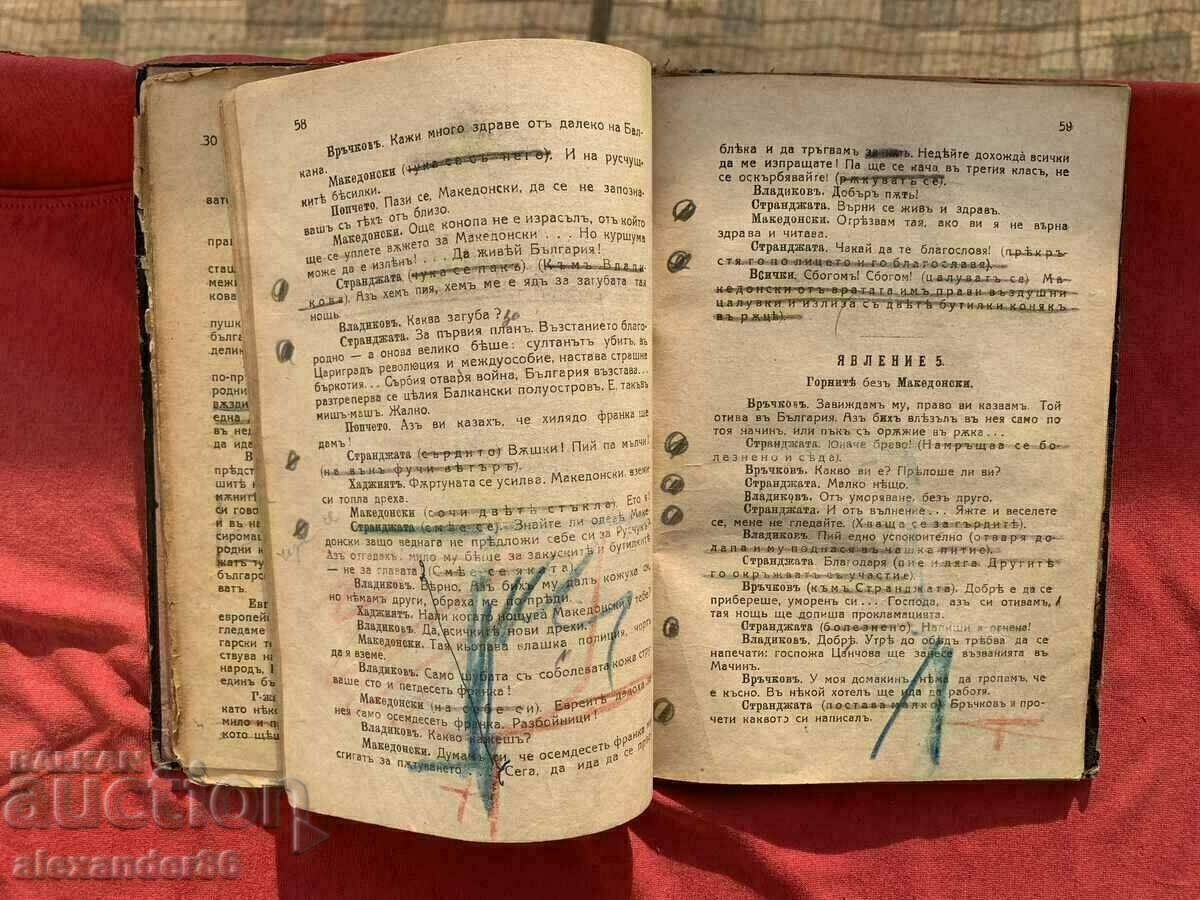 30
58
Връчковъ. Кажи много здраве отъ далеко на Бал-
кана.
Македонски (чука се съ него). И на русчуш-
китѣ бѣсилки.
Попчето. Пази се, Македонски, да се не запозна-
вашъ съ тѣхъ отъ близо.
Македонски. Още конопа не е израсълъ, отъ който
ще се уплете вѫжето за Македонски . . . Но куршума
може да е излѣнъ! . . . Да живѣй България!
Странджата (чука се пакъ). (Къмъ Влади-
кова). Азъ хемъ пия, хемъ ме е ядъ за загубата тая
нощь.
Владиковъ. Каква загуба?
Странджата. За първия планъ. Възстанието благо-
родно — а онова велико бѣше: султанътъ убитъ, въ
Цариградъ революция и междуособие, настава страшна
бъркотия... Сърбия отваря война, България възстава...
разтреперва се цѣлия Балкански полуостровъ. Е, такъвъ
мишъ-машъ. Жално.
Попчето. Азъ ви казахъ, че хилядо франка ще
дамъ!
Странджата (сърдито) Вѫшки! Пий па мълчи!
(на вънъ фучи вѣтъръ).
Хаджиятъ. Фѫртуната се усилва. Македонски, вземи
си топла дреха.
Македонски (сочи двѣтѣ стъкла). Ето
Странджата (смѣе се). Знайте ли одеве Маке-
донски защо веднага не предложи себе си за Русчукъ?
Азъ отгадахъ: мило му бѣше за закуските и бутилките
— не за главата (Смѣе се яката).
Владиковъ. Вѣрно, Азъ бихъ му далъ кожуха си,
но нѣмамъ други, обраха ме по-прѣди.
Хаджиятъ. Нали когато нощува Македонски у тебе?
Владиковъ. Да, всичкитѣ нови дрехи.
Македонски. Тая кьорава влашка полиция, чортъ
да я вземе.
Владиковъ. Само шубата съ соболевата кожа стру-
ваше сто и петдесетъ франка!
Македонски (на себе си). Евреитѣ дадоха за
нея само осемдесетъ франка. Разбойници!
Владиковъ. Какво кажешъ?
Македонски. Думамъ си, че осемдесетъ франка ми
стигатъ за пѫтуването . . . Сега, да ида да се прѣ-
59
блѣка и да тръгвамъ Недѣйте дохожда всички
да ме изпращате! Па ще се кача въ третия класъ, не
се оскърбявайте! (рѫкуватъ се).
Владиковъ. Добъръ пѫть!
Странджата. Върни се живъ и здравъ.
Македонски. Огрѣзвам тая, ако ви я не върна
здрава и читава.
Странджата. Чакай да те благословя! (прѣкръ-
стя го по лицето и го благославя).
Всички. Сбогомъ! Сбогомъ! (цалуватъ се) Ма-
кедонски отъ вратата имъ прави въздушни
цалувки и излиза съ двѣтѣ бутилки конякъ
въ рѫцѣ).
ЯВЛЕНИЕ 5.
Горнитѣ безъ Македонски.
Връчковъ. Завиждамъ му, право ви казвамъ. Той
отива въ България. Азъ бихъ влѣзълъ въ нея само по
тоя начинъ, или пъкъ съ орѫжие въ рѫка...
Странджата. Юначе браво! (Намръщва се бо-
лезнено и сѣда).
Връчковъ. Какво ви е? Прѣлоше ли ви?
Странджата. Малко нѣщо.
Владиковъ. Отъ уморяване, безъ друго.
Странджата. И отъ вълнение... Яжте и веселете
се, мене не гледайте. (Хваща се за гърдитѣ).
Владиковъ. Пий едно успокоително (отваря до-
лапа и му поднася въ чашка питие).
Странджата. Благодаря (пие и ляга Другитѣ
го окръжаватъ съ участие).
Връчковъ (къмъ Странджата). Добрѣ е да се
прибереше, уморенъ си... Господа, азъ си отивамъ,
тая нощь ще допиша прокламацията.
Странджата (болезнено). Напиши я огнена!
Владиковъ. Добрѣ. Утрѣ до обѣдъ трѣбва да се
напечати: госпожа Цанчова ще занесе възванията въ
Мачинъ.
Връчковъ. У моя домакинъ нѣма да тропамъ, че
е късно. Въ нѣкой хотелъ ще ида да работя.
Странджата (постава малко) Бръчковъ я про-
чети каквото си написалъ.
BALKAN
auction
alexander86